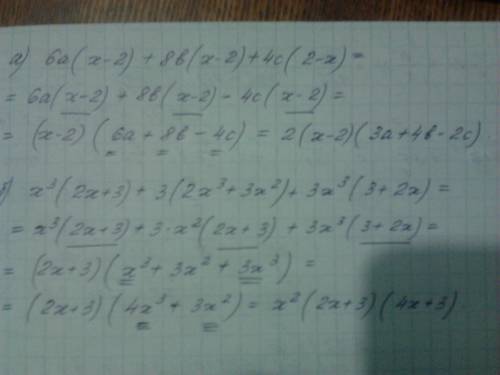 а) 6a(x-2) + 8в(x-2) + 4c(2-x) =
= 6a(x-2) + 8в(x-2) - 4c(x-2) =
= (x-2)(6a + 8в - 4c) = 2(x-2)(3a+4в-2c)
б) x³(2x+3) + 3(2x³+3x²) + 3x³(3+2x) =
= x³(2x+3) + 3·x²(2x+3) + 3x³(3+2x) =
= (2x+3)(x³ + 3x² + 3x³) =
= (2x+3)(4x³ + 3x²) = x²(2x+3)(4x+3)